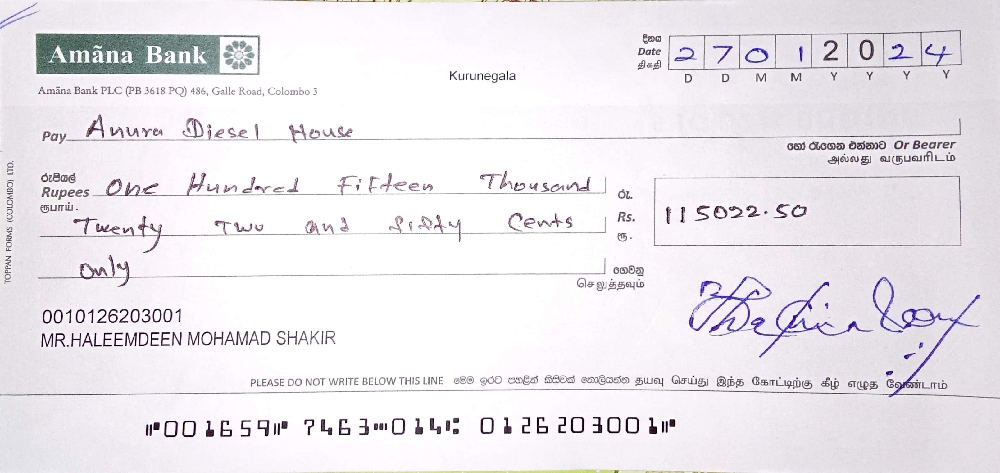 Amãna Bank
Kurunegala
දිනය
Date
திகதி
2 7 0 1 2 0 2 4
D D M M Y Y Y Y
Amãna Bank PLC (PB 3618 PQ) 486, Galle Road, Colombo 3
Pay Anura Diesel House
හෝ රැගෙන එන්නාට Or Bearer
அல்லது வருபவரிடம்
රුපියල්
Rupees One Hundred Fifteen Thousand
ரூபாய்.
Twenty Two and Fifty Cents
only
රු.
Rs. 115022.50
ரூ.
ගෙවනු
செலுத்தவும்
TOPPAN FORMS (COLOMBO) LTD.
0010126203001
MR.HALEEMDEEN MOHAMAD SHAKIR
PLEASE DO NOT WRITE BELOW THIS LINE මෙම ඉරට පහළින් කිසිවක් නොලියන්න தயவு செய்து இந்த கோட்டிற்கு கீழ் எழுத வேண்டாம்
⑈001659⑈ 7463⑉014⑆ 0126203001⑈